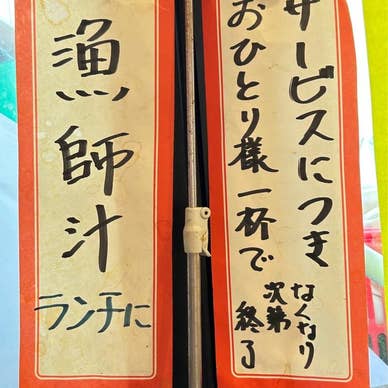 サービスにつき
おひとり様一杯で
なくなり
次第
終了
漁師汁
ランチに